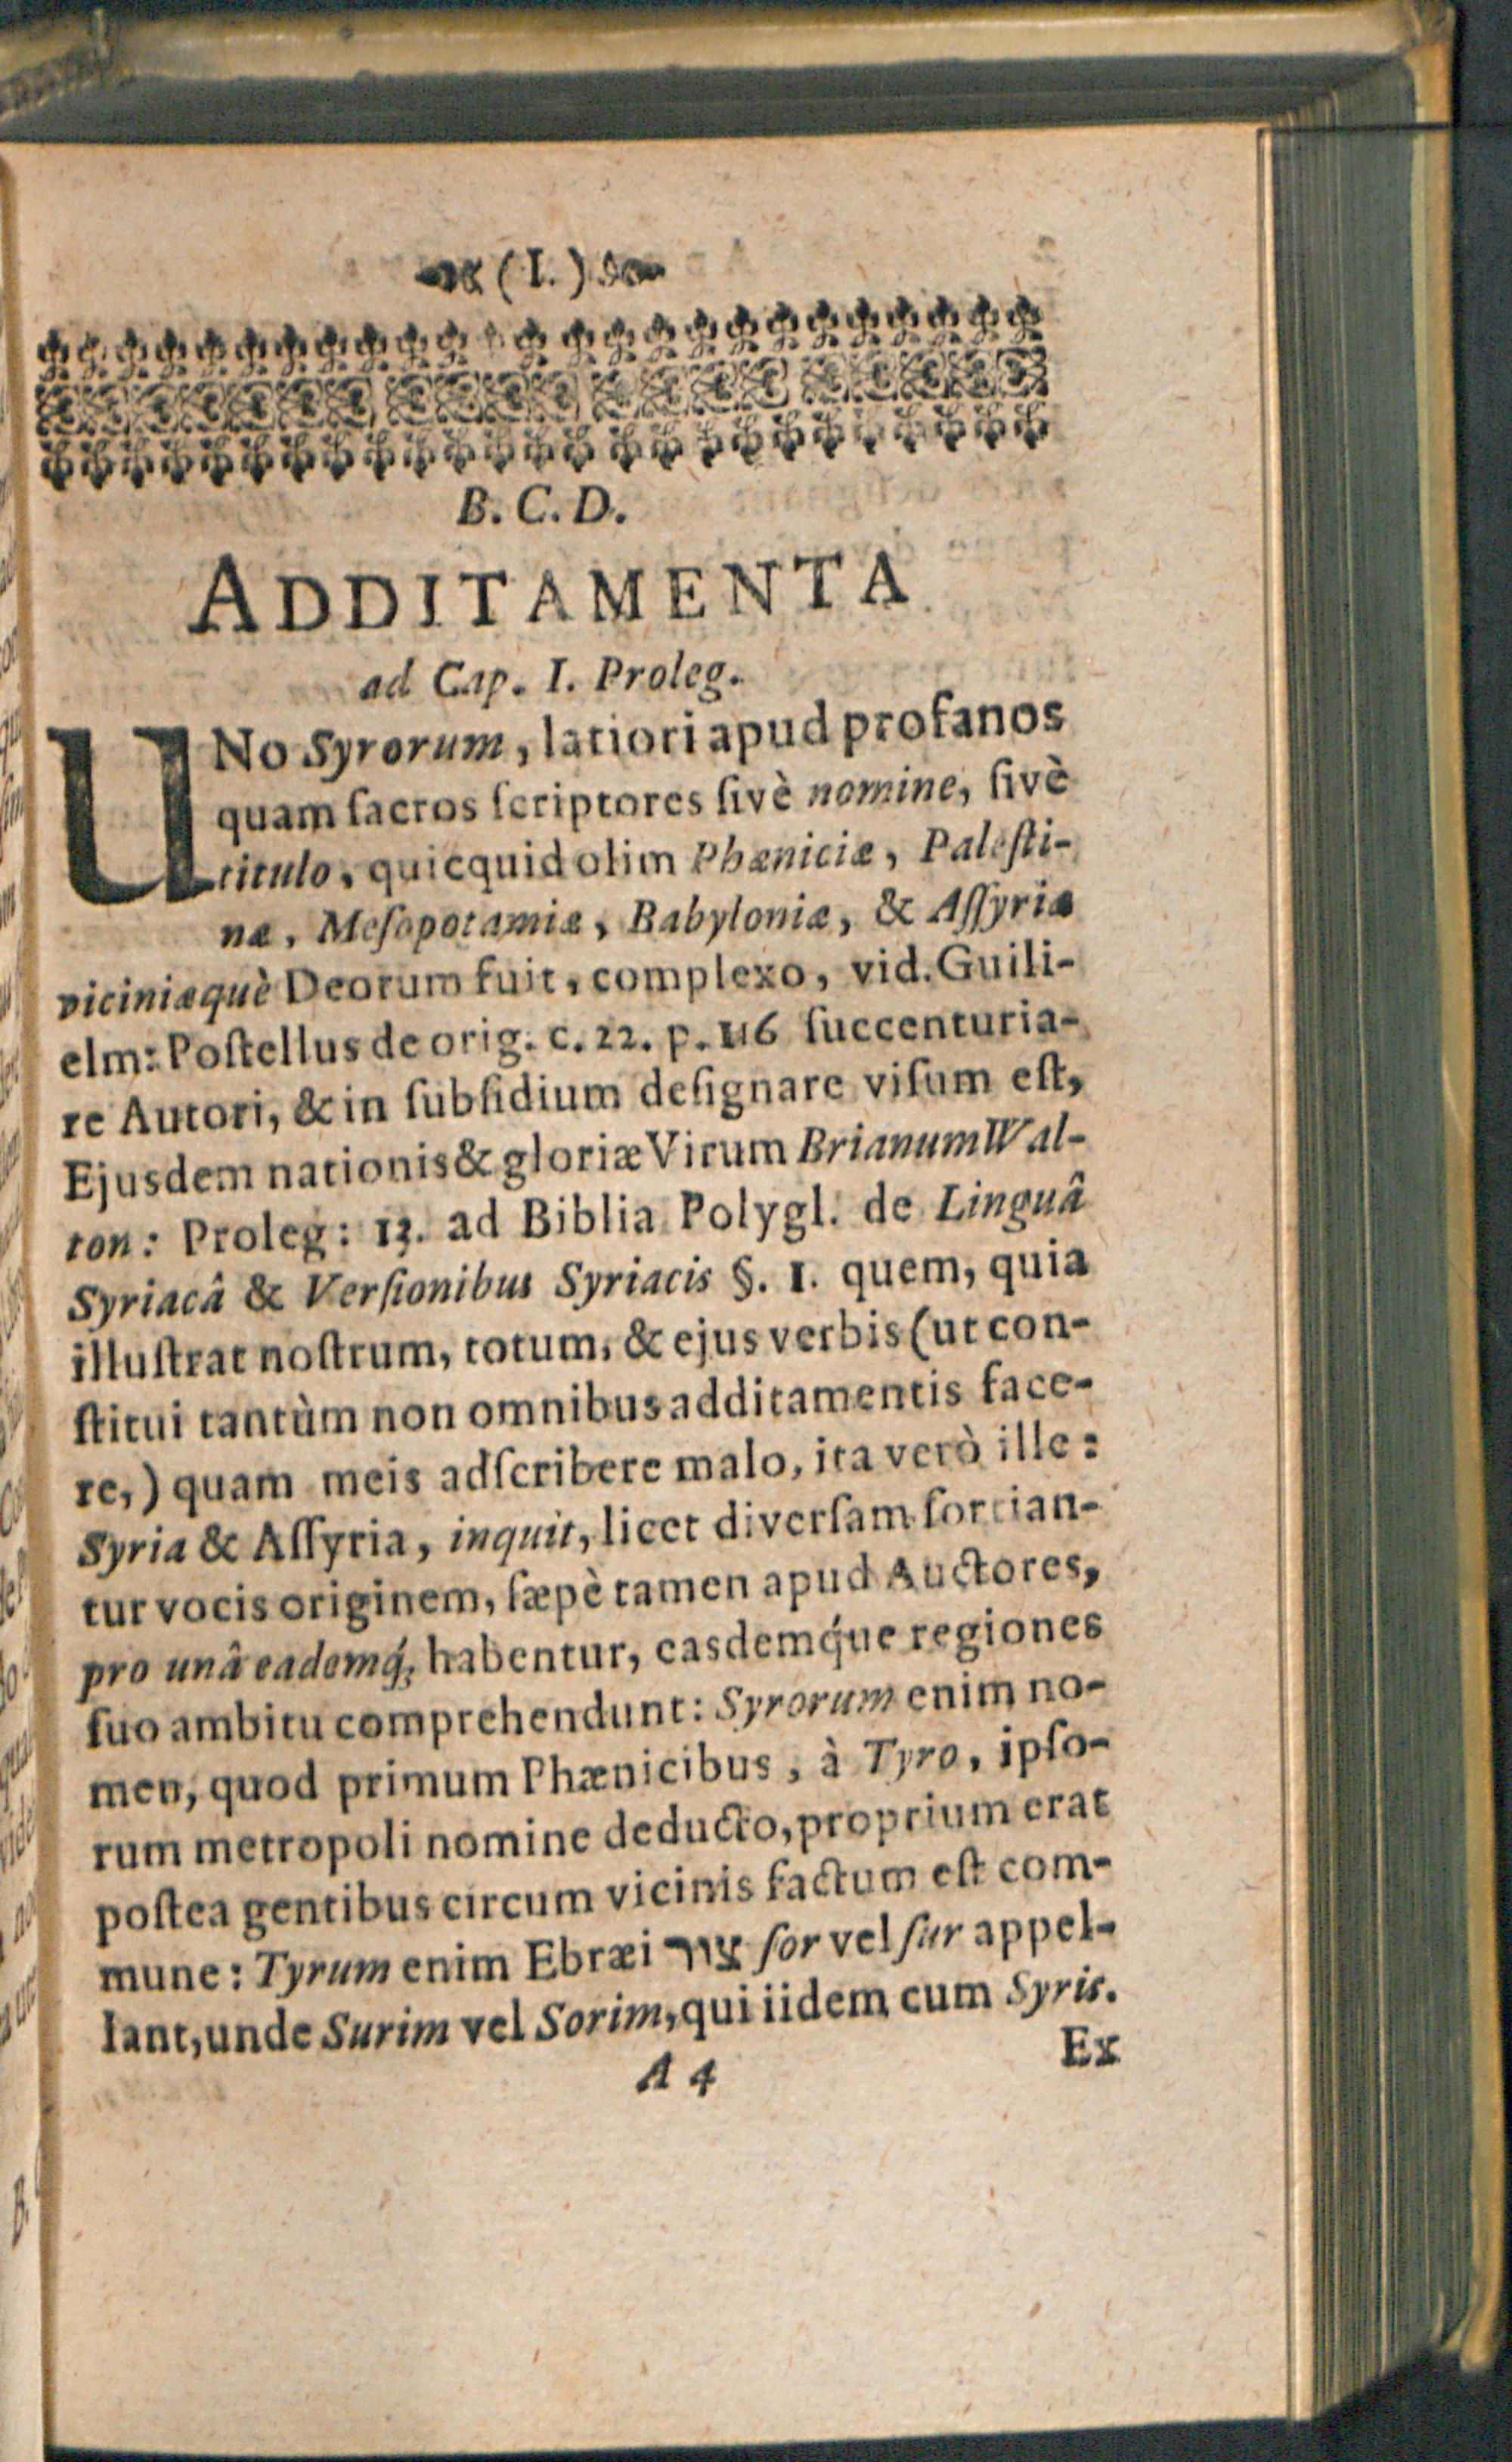 (I.)
B. C. D.
ADDITAMENTA
ad Cap. I. Proleg.
UNo Syrorum, latiori apud profanos
quam ſacros ſcriptores ſivè nomine, ſivè
titulo, quicquid olim Phæniciæ, Paleſti-
næ, Meſopotamiæ, Babyloniæ, & Aſſyriæ
viciniæquè Deorum fuit, complexo, vid. Guili-
elm: Poſtellus de orig. c. 22. p. 116 ſuccenturia-
re Autori, & in ſubſidium deſignare viſum eſt,
Ejusdem nationis & gloriæ Virum Brianum Wal-
ton: Proleg: 13. ad Biblia Polygl. de Linguâ
Syriacâ & Verſionibus Syriacis §. 1. quem, quia
illuſtrat noſtrum, totum, & ejus verbis (ut con-
ſtitui tantùm non omnibus additamentis face-
re,) quam meis adſcribere malo, ita verò ille:
Syria & Aſſyria, inquit, licet diverſam ſortian-
tur vocis originem, ſæpè tamen apud Auctores,
pro unâ eademq́; habentur, easdemq́ue regiones
ſuo ambitu comprehendunt: Syrorum enim no-
men, quod primum Phænicibus, à Tyro, ipſo-
rum metropoli nomine deducto, proprium erat
poſtea gentibus circum vicinis factum eſt com-
mune: Tyrum enim Ebræi צור ſor vel ſur appel-
lant, unde Surim vel Sorim, qui iidem cum Syris.
A 4 Ex